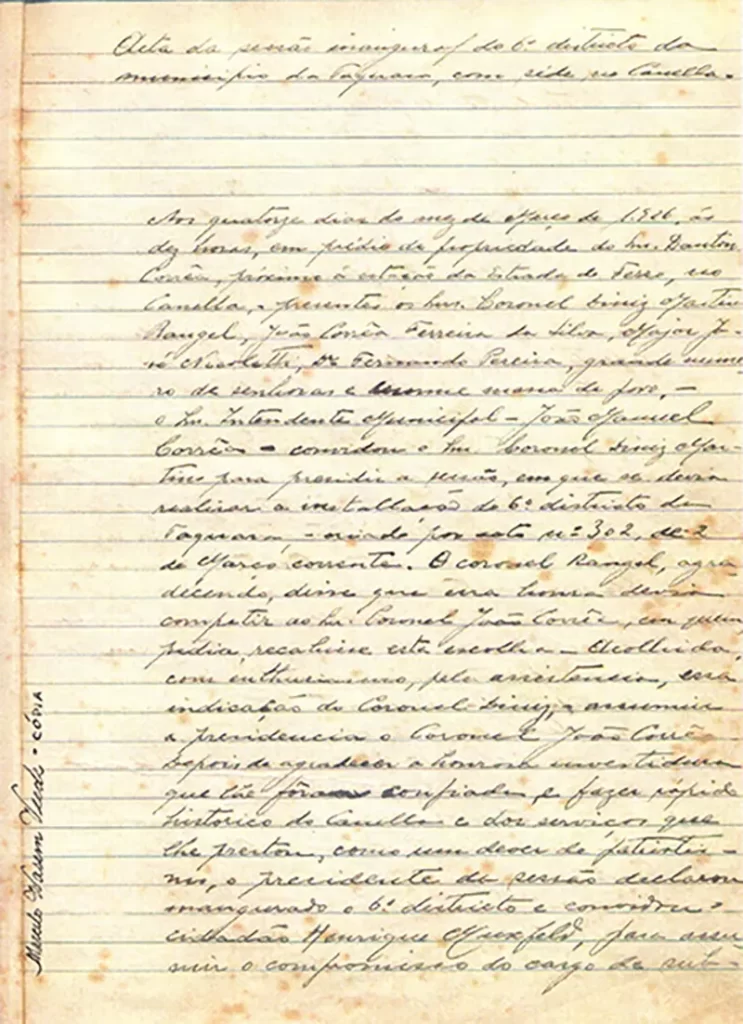 Acta da sessão inaugural do 6º districto do
municipio da Taquara, com séde no Canella.
Aos quatorze dias do mez de Março de 1.926, ás
dez horas, em prédio de propriedade do Snr. Danton
Corrêa, próximo á estação da Estrada de Ferro, no
Canella, - presentes os Snrs. Coronel Diniz Martins
Rangel, João Corrêa Ferreira da Silva, Major Jo-
sé Nicoletti, Dr. Fernando Pereira, grande nume-
ro de senhoras e enorme massa de povo, -
o Snr. Intendente Municipal - João Manuel
Corrêa - convidou o Snr. Coronel Diniz Mar-
tins para presidir a sessão, em que se devia
realizar a installação do 6º districto de
Taquara, - creado por acto nº 302, de 2
de Março corrente. O coronel Rangel, agra-
decendo, disse que essa honra devia
competir ao Snr. Coronel João Corrêa, em quem
pedia, recahisse esta escolha - Acolhida,
com enthusiasmo, pela assistencia, essa
indicação do Coronel Diniz, - assumiu
a presidencia o Coronel João Corrêa.
Depois de agradecer a honrosa investidura
que lhe fôra confiada, e fazer rápido
historico do Canella e dos serviços que
lhe prestou, como um dever de patriotis-
mo, o presidente da sessão declarou
inaugurado o 6º districto e convidou o
cidadão Henrique Muxfeld, para assu-
mir o compromisso do cargo de sub-
Marcelo Wasem Veeck - CÓPIA